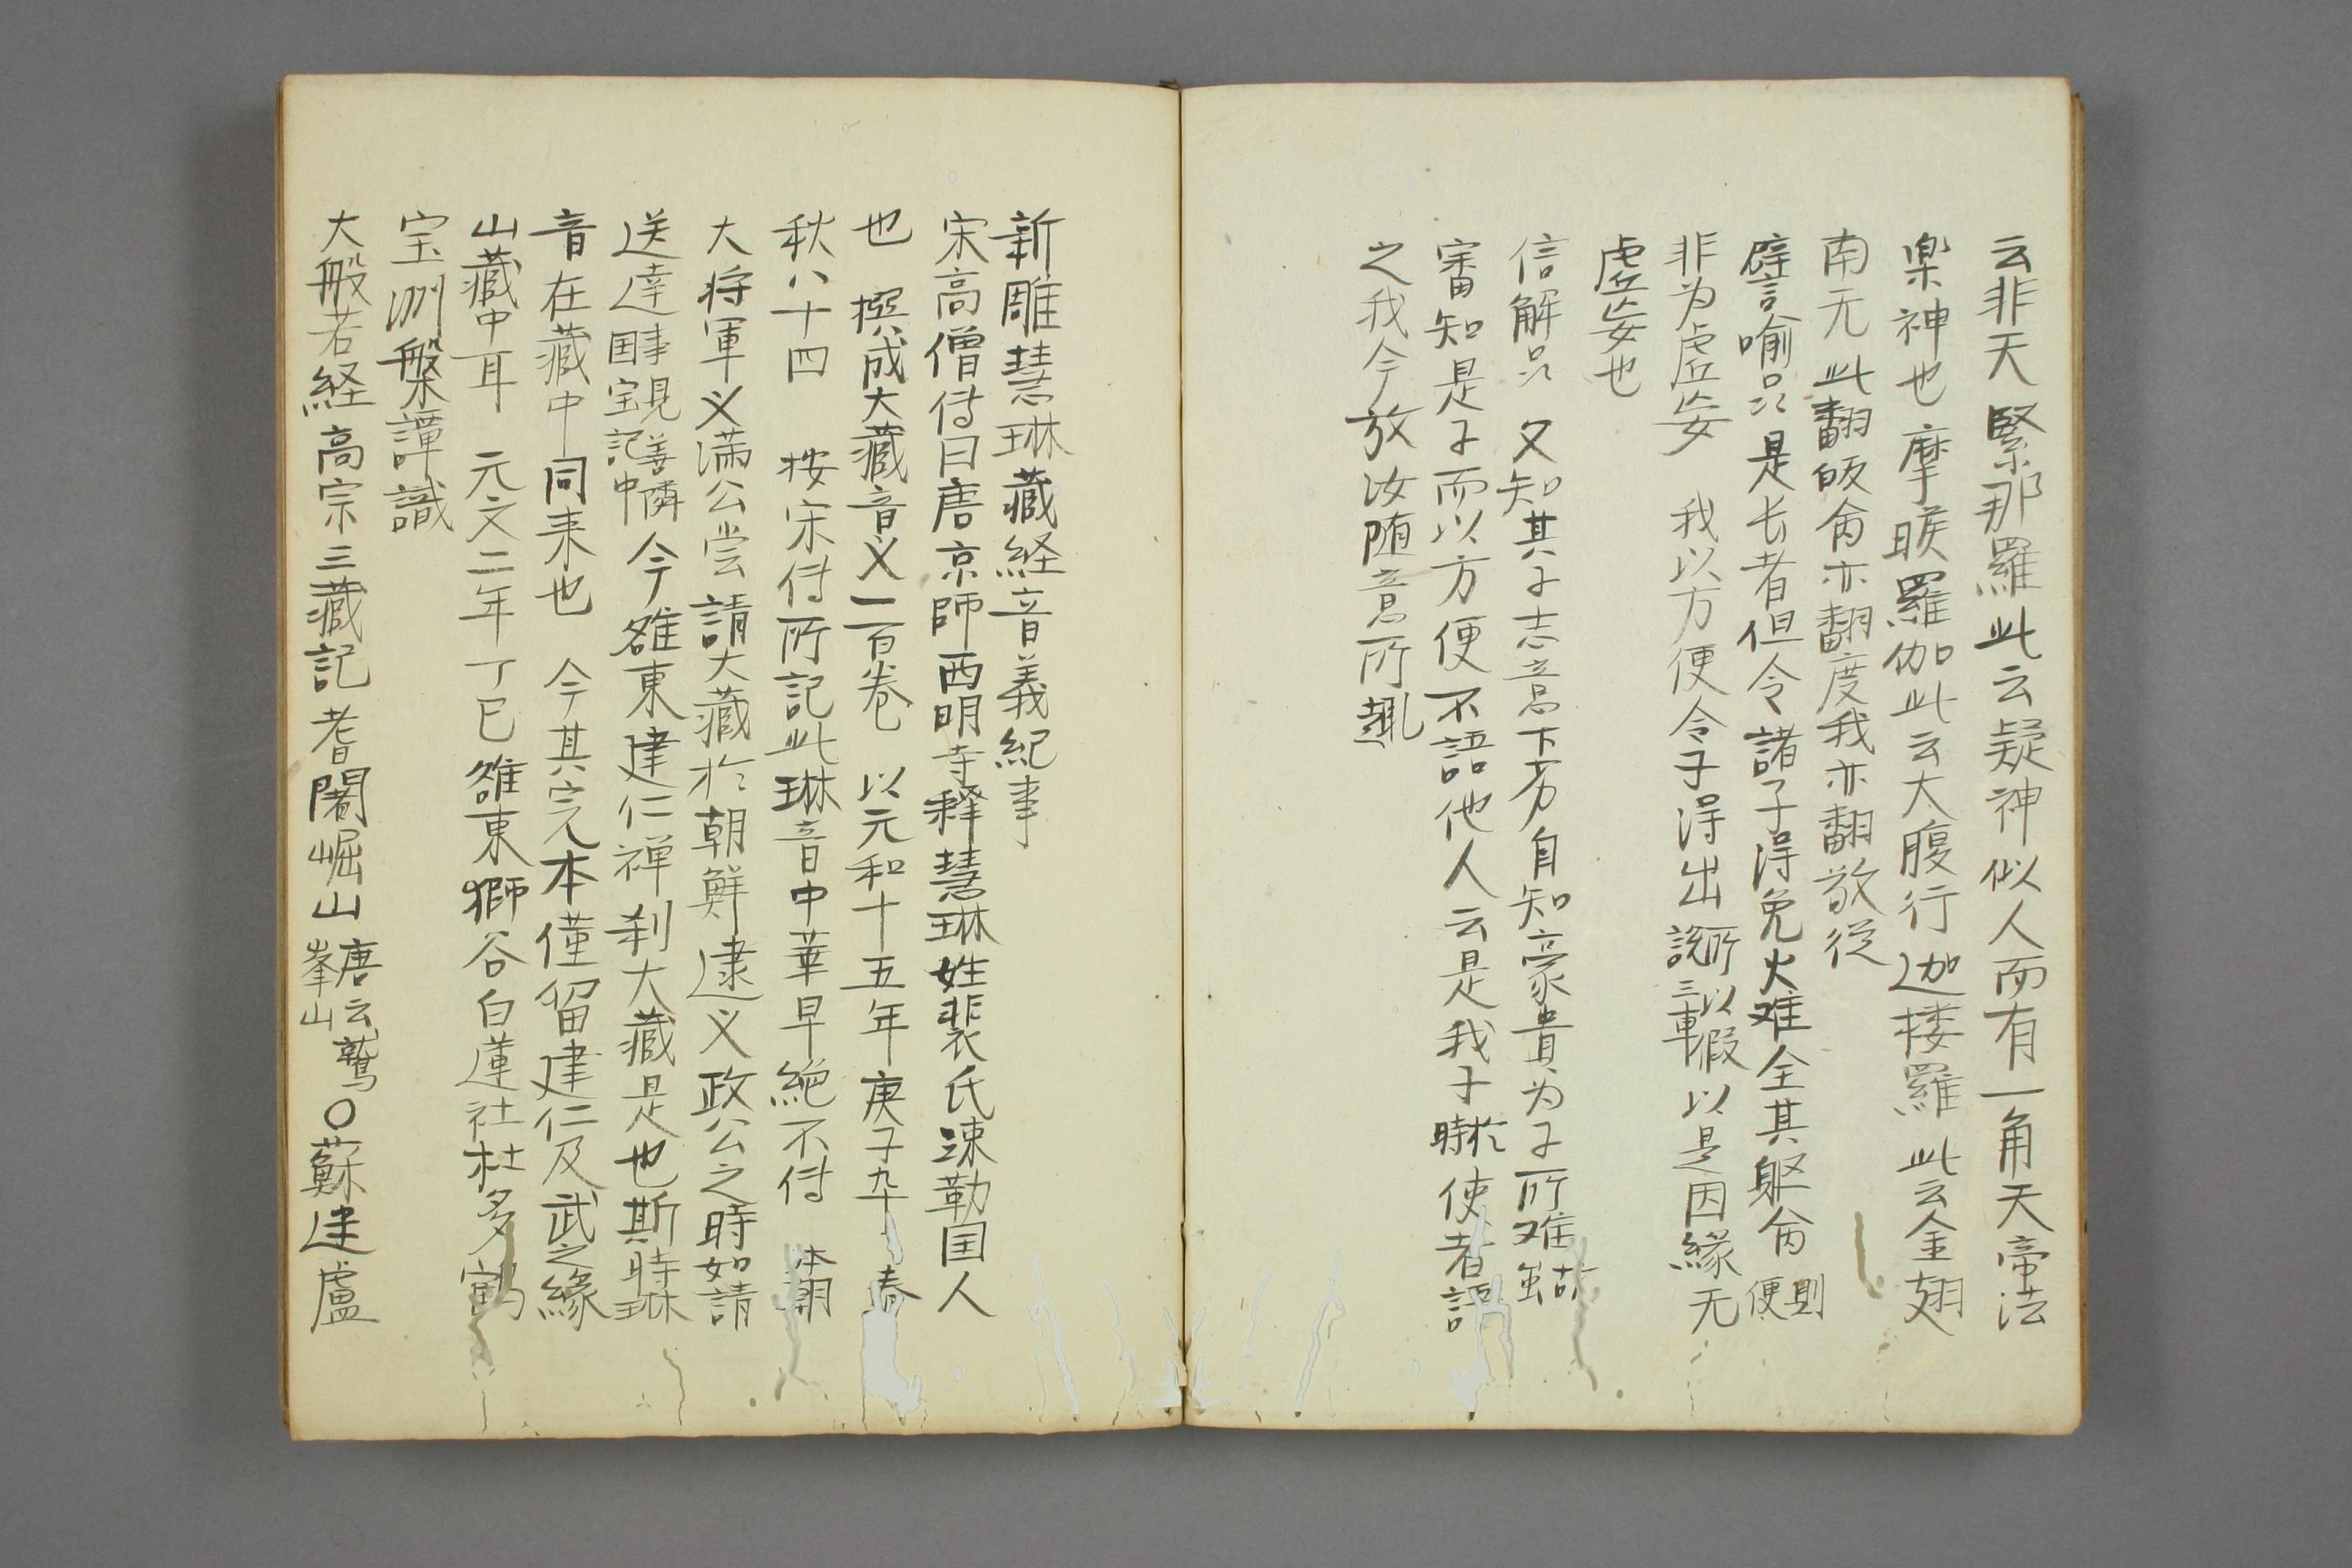 云非天緊那羅此云疑神似人而有一角天帝法
楽神也摩睺羅伽此云大腹行迦楼羅此云金翅
南无此翻皈命亦翻度我亦翻敬従
譬喩品是长者但令諸子得免火难全其躯命則便
非为虚妄 我以方便令子得出所以假説三車以是因縁无
虚妄也
信解品 又知其子志意下劣自知豪貴为子所难
審知是子而以方便不語他人云是我子於時使者語
之我今放汝随意所趣
新雕慧琳藏経音義紀事
宋高僧传曰唐京師西明寺釋慧琳姓裴氏疎勒国人
也 撰成大藏音义一百卷 以元和十五年庚子卒 春
秋八十四 按宋传所記此琳音中華早絶不传 本朝
大将軍义満公尝請大藏於朝鮮逮义政公之時如請
送達事見善憐国宝記中今雒東建仁禅刹大藏是也斯時琳
音在藏中同来也 今其完本僅留建仁及武之緣
山藏中耳 元文二年丁巳雒東獅谷白蓮社杜多
宝洲槃譚識
大般若経高宗三藏記耆闍崛山唐云鷲峯山○蘇迷盧